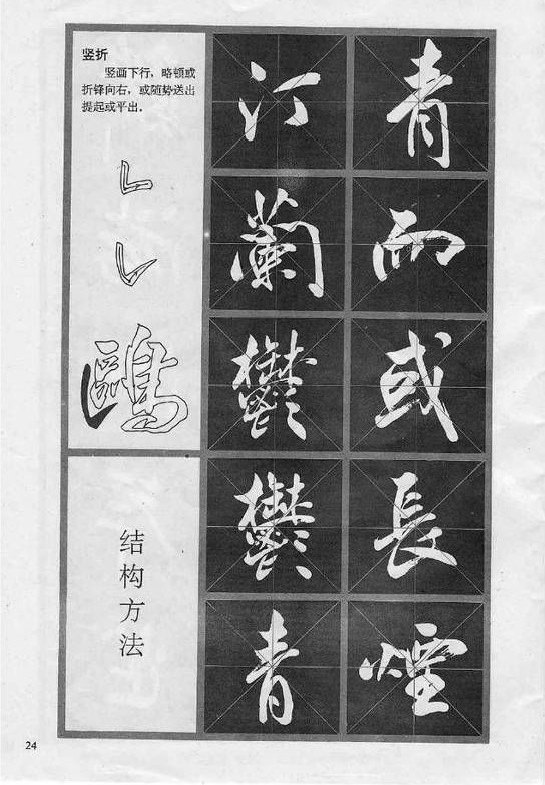 竖折
竖画下行，略顿或
折锋向右，或随势送出
提起或平出。
鷗
结构方法
青
而
或
長
煙
汀
蘭
鬱
鬱
青
24